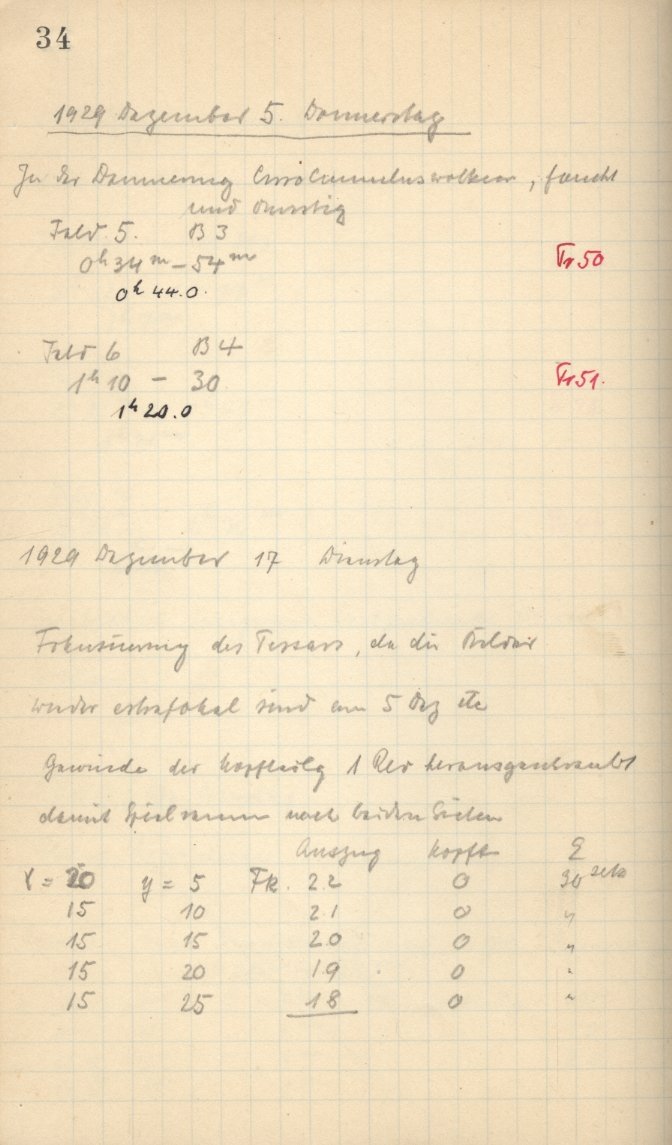 34
1929 Dezember 5. Donnerstag
In der Dämmerung Cirrocumuluswolken, feucht
und dunstig
Feld 5. B 3
0h 34m – 54m Tr 50
0h 44.0.
Feld 6 B 4
1h 10 – 30 Tr 51.
1h 20.0
1929 Dezember 17 Dienstag
Fokusierung des Tessars, da die Bilder
wieder extrafokal sind am 5 Dez etc
Gewinde der Kopfteilg 1 Rev herausgeschraubt
damit Spielraum nach beiden Seiten
Auszug Kopft E
X = 20 y = 5 Fk. 22 0 30 sek
15 10 21 0 "
15 15 20 0 "
15 20 19 0 "
15 25 18 0 "